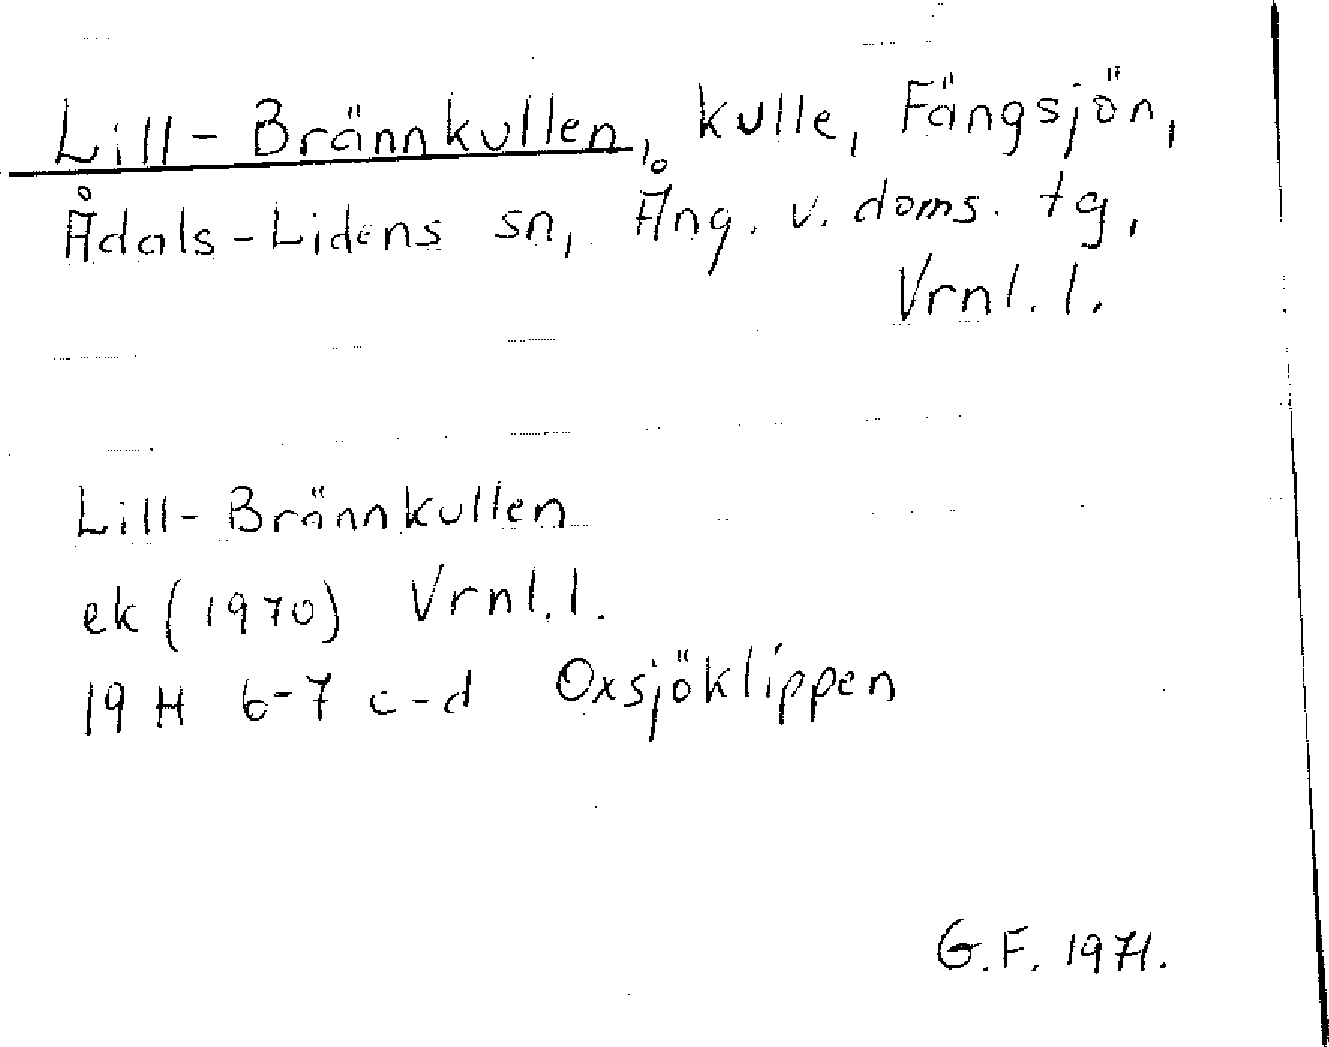 Lill-Brännkullen, kulle, Fängsjön,
Ådals-Lidens sn, Ång. v. doms. tg,
Vrnl. l.
Lill-Brännkullen
ek (1970) Vrnl. l.
19 H 6-7 c-d Oxsjöklippen
G.F. 1971.